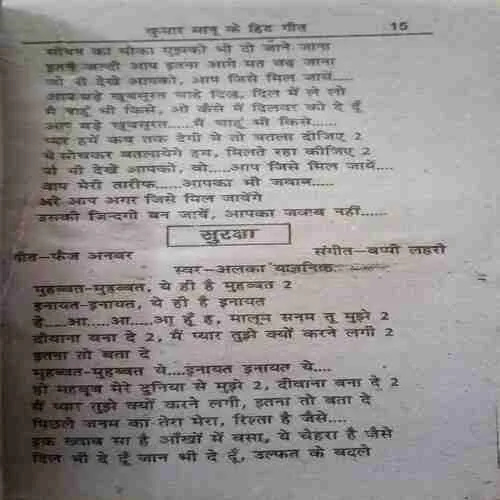 कुमार सानू के हिट गीत 15
सोचने का मौका मुझको भी दो जाने जाना
इतने जल्दी आप इतना आगे मत बढ़ जाना
जो भी देखे आपको, आप जिसे मिल जायें....
आप बड़े खूबसूरत चाहे दिल, दिल में ले लो
मैं चाहूं भी किसे, ओ कैसे मैं दिलवर को दे दूँ
आप बड़े खूबसूरत......मैं चाहूं भी किसे......
प्यार हमें कब तक देगी ये तो बतला दीजिए 2
ये सोचकर बतलायेंगे हम, मिलते रहा कीजिए 2
यां भी देखे आपको, वो.....आप जिसे मिल जायें....
बाप मेरी तारीफ......आपका भी जवाब.....
अरे आप अगर जिसे मिल जायेंगे
उसकी जिन्दगी बन जाये, आपका जवाब नहीं......
सुरक्षा
गीत-फैज अनवर संगीत-बप्पी लहरी
स्वर-अलका याज्ञनिक
मुहब्बत-मुहब्बत, ये ही है मुहब्बत 2
इनायत-इनायत, ये ही है इनायत
हे.....आ.....आ.....आ हूँ हूं, मालूम सनम तू मुझे 2
दीवाना बना दे 2, मैं प्यार तुझे क्यों करने लगी 2
इतना तो बता दे
मुहब्बत-मुहब्बत ये....इनायत इनायत ये....
हो महबूब मेरे दुनिया से मुझे 2, दीवाना बना दे 2
मैं प्यार तुझे क्यों करने लगी, इतना तो बता दे
पिछले जनम का तेरा मेरा, रिश्ता है जैसे....
इक ख्वाब सा है आँखों में बसा, ये चेहरा है जैसे
दिल भी दे दूँ जान भी दे दूँ, उल्फत के बदले